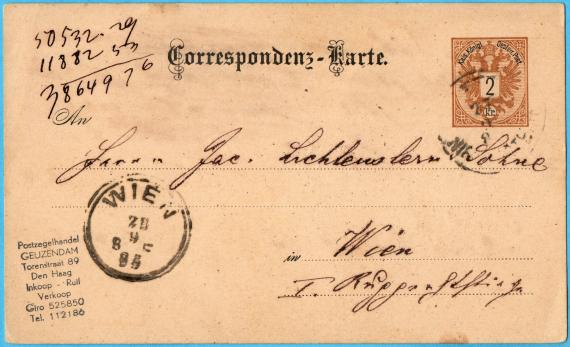 50532.29
11882 53
3864976
Correspondenz-Karte.
Kais. Königl. Oesterr. Post
2
Kr.
An
Herrn Jac. Lichtenstern Söhne
WIEN
in Wien
I. Ruprechtstiege
Postzegelhandel
GEUZENDAM
Torenstraat 89
Den Haag
Inkoop - Ruil
Verkoop
Giro 525850
Tel. 112186